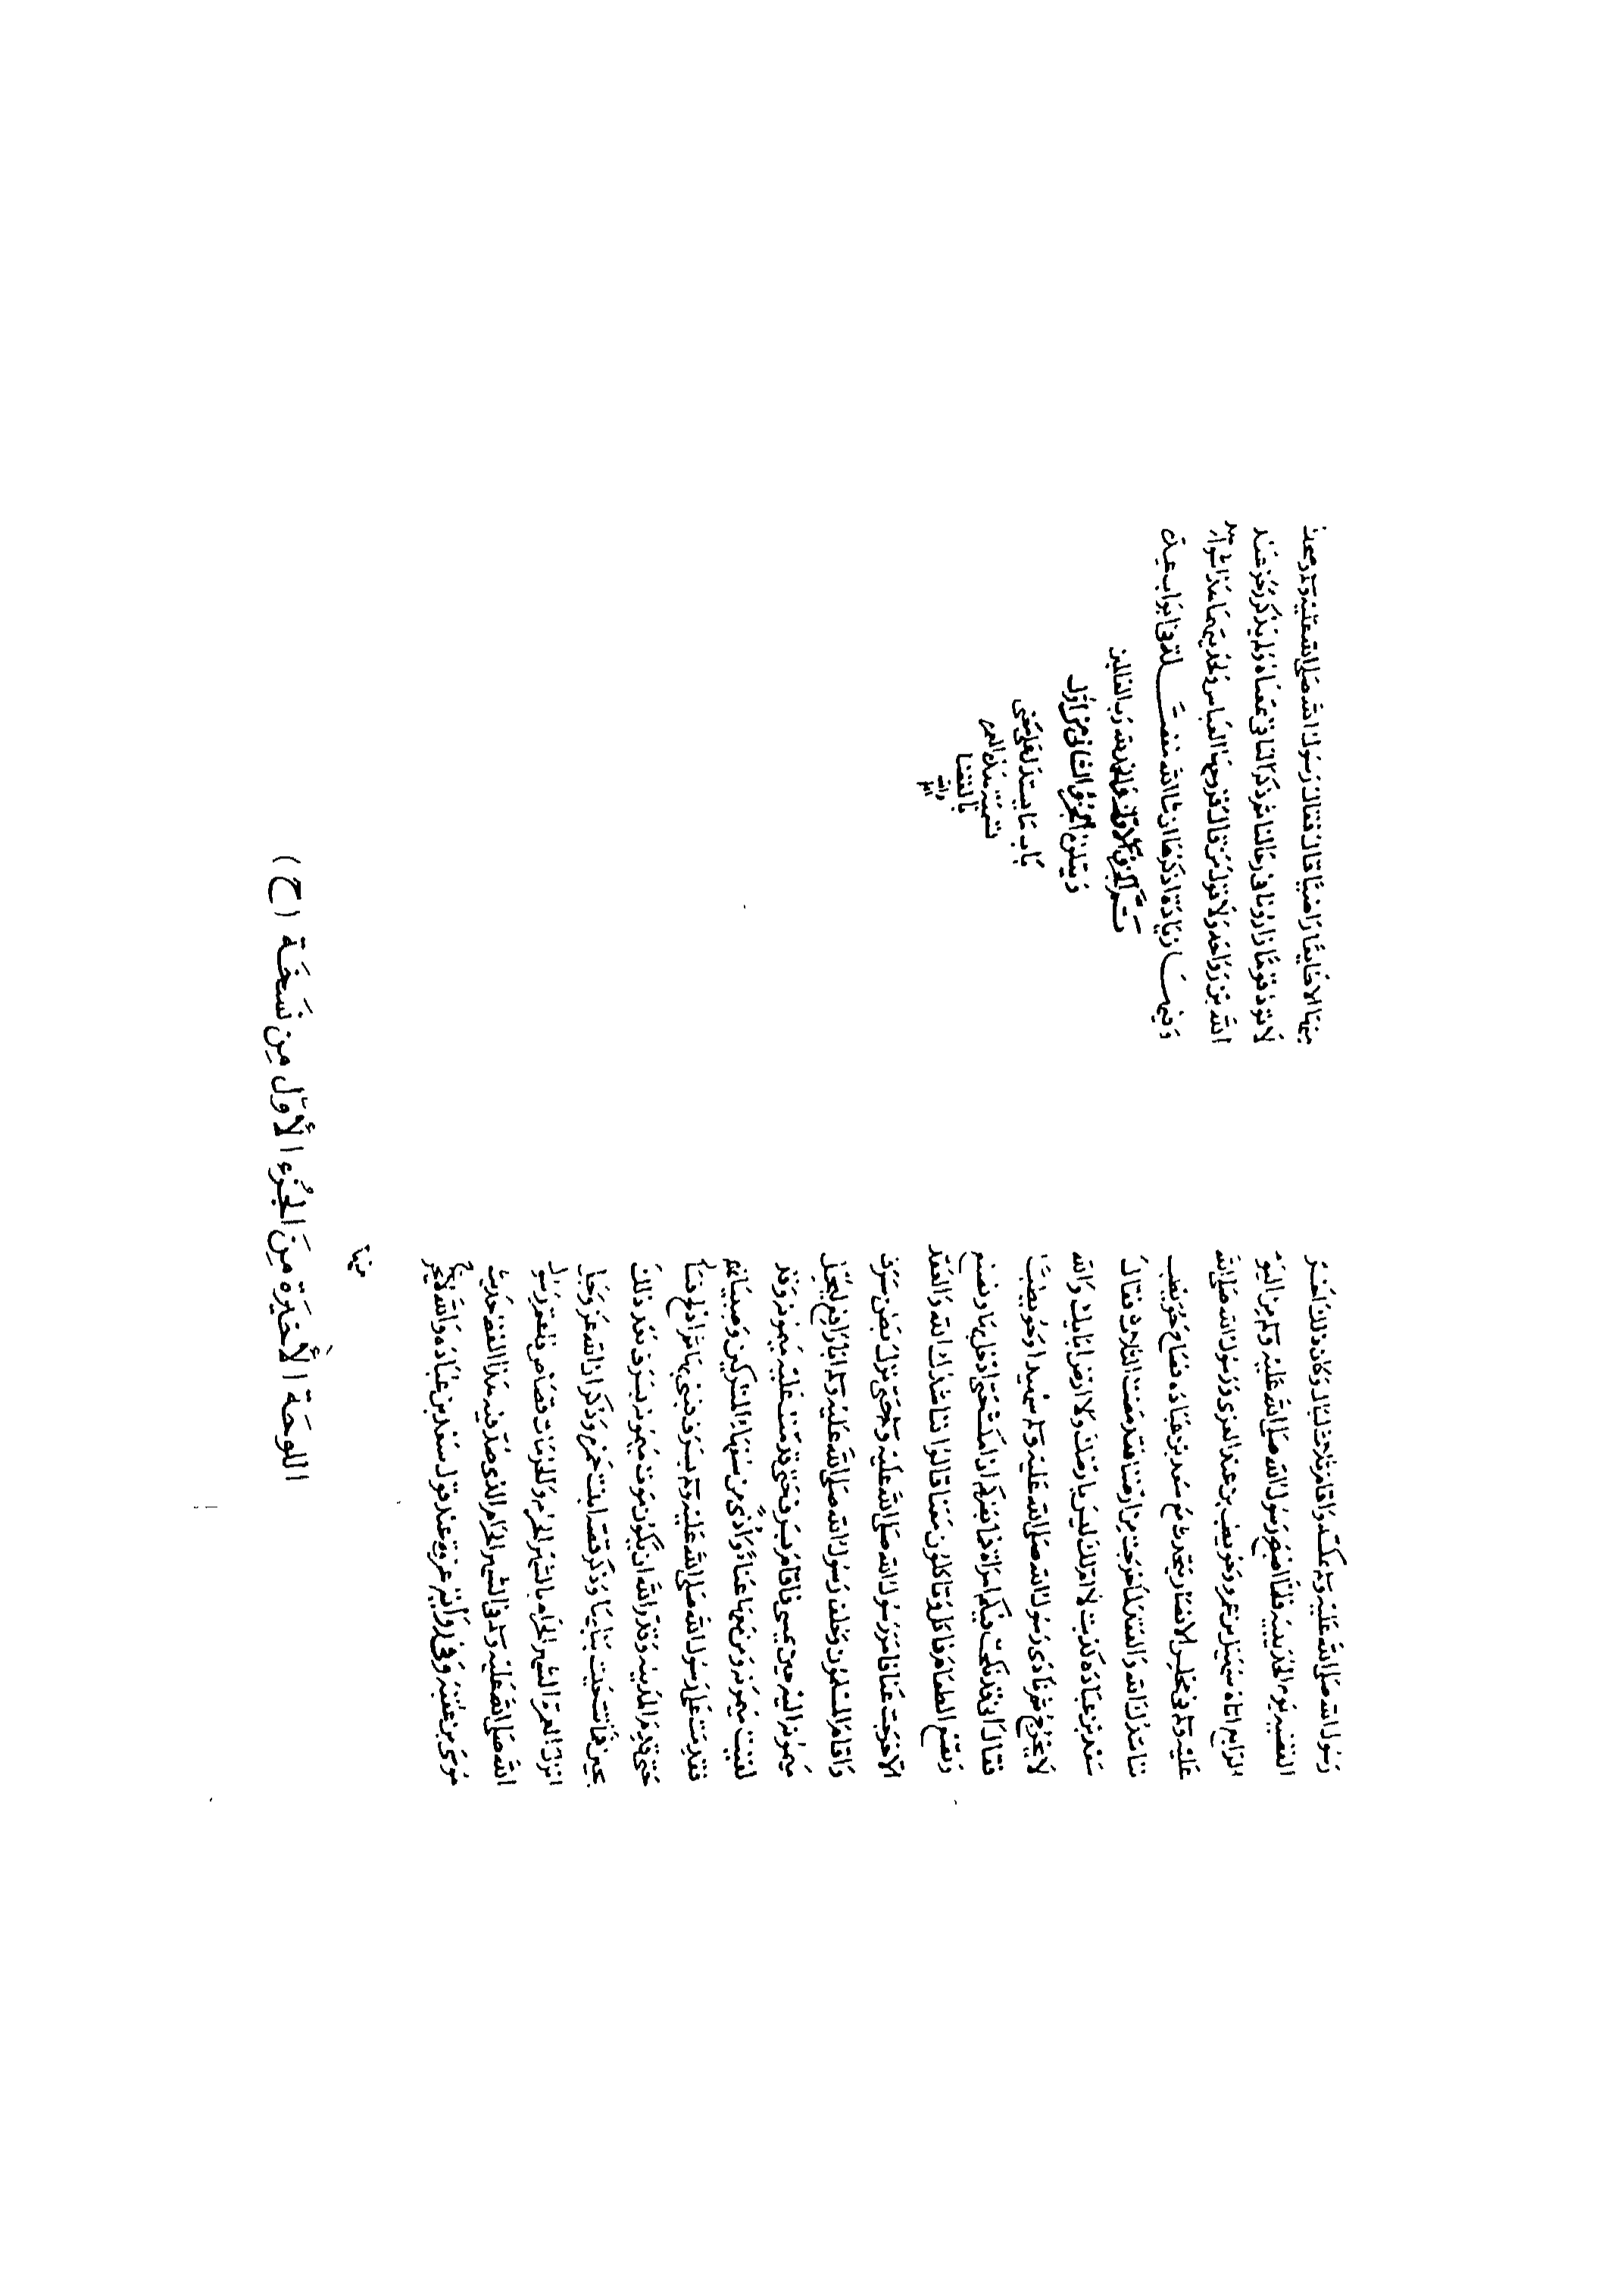 رسول الله صلى الله عليه وسلم بمكة واقام ثلاث ليال وكان ذلك آخر
القضية يوم الحديبية فلما اصبح رسول الله صلى الله عليه وسلم من اليوم
الرابع اتاه سهيل بن عمرو وحويطب بن عبد العزى ورسول الله صلى الله
عليه وسلم في مجلس الانصار يتحدث مع سعد بن عبادة فصاح حويطب
نناشدك الله والعقد لما خرجت من ارضنا فقد مضت الثلاث فقال
سعد بن عبادة كذبت لا ام لك ليس بارضك ولا ارض ابايك والله
لا يخرج ثم نادى رسول الله صلى الله عليه وسلم سهيلا وحويطبا
فقال اني قد نكحت فيكم امراة فما يضركم ان امكث حتى ادخل بها ونصنع
ونضع الطعام فناكل وتاكلون معنا قالوا نناشدك الله والعقد
الا خرجت عنا فامر رسول الله صلى الله عليه وسلم حتى نزل بطن سرف
واقام المسلمون وخلف رسول الله صلى الله عليه وسلم ابا رافع ليحمل
ميمونة اليه حين يمسي فاقام بسرف حتى قدمت عليه ميمونة وقد
لقيت ميمونة ومن معها عناء واذى من سفهاء المشركين وصبيانهم
فقدمت على رسول الله صلى الله عليه وسلم بسرف فبنى بها ثم ادلج فسار
حتى قدم المدينة وقدر الله ان يكون موت ميمونة بسرف بعد ذلك
بحين فماتت حيث بنى بها وذكر قصة ابنت حمزة وذكر ان الله عز وجل
انزل في العمرة الشهر الحرام بالشهر الحرام والحرمات قصاص فاعتمر رسول
الله صلى الله عليه وسلم في الشهر الحرام الذي صد فيه هذا لفظ حديث
موسى بن عقبة وفي رواية عروة عند قول سعد بن عبادة والله لا يخرج
منها
منها الا طايعا راضيا فقال رسول الله صلى الله عليه وسلم وضحك
لا تؤذ قوما زارونا في رحالنا ثم ذكر الباقي بمعناه ولم يذكر رجز عبد
الله بن رواحة ولا قوله من قال تزوجها العباس ولهذين شواهد
وفيها زيادة اذكرها ان شا الله متفرقة في ابواب عدة
تم الجزء الاول والحمد لله رب العالمين
ويتلوه الجزء الثاني من اول
باب ما يستدل به على معنى
تسميته هذه العمرة
بالقضا
اللوحَة الأخيَرة مِنَ الجُزء الأوَّل مِن نُسَخَة (ح)